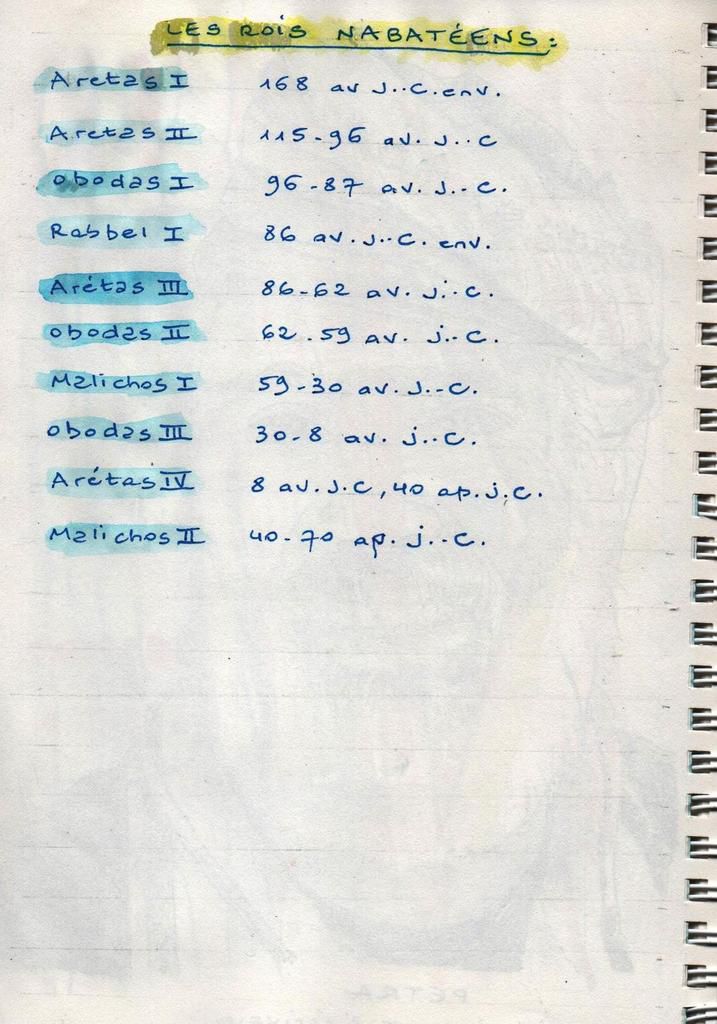 LES ROIS NABATÉENS :
Aretas I 168 av J..C. env.
Aretas II 115-96 av. J..C
Obodas I 96-87 av. J.-C.
Rabbel I 86 av. J.-C. env.
Arétas III 86-62 av. J.-C.
Obodas II 62.59 av. J.-C.
Malichos I 59-30 av. J.-C.
Obodas III 30-8 av. j..C.
Arétas IV 8 av. J.C, 40 ap. j.C.
Malichos II 40-70 ap. j..C.
PETRA